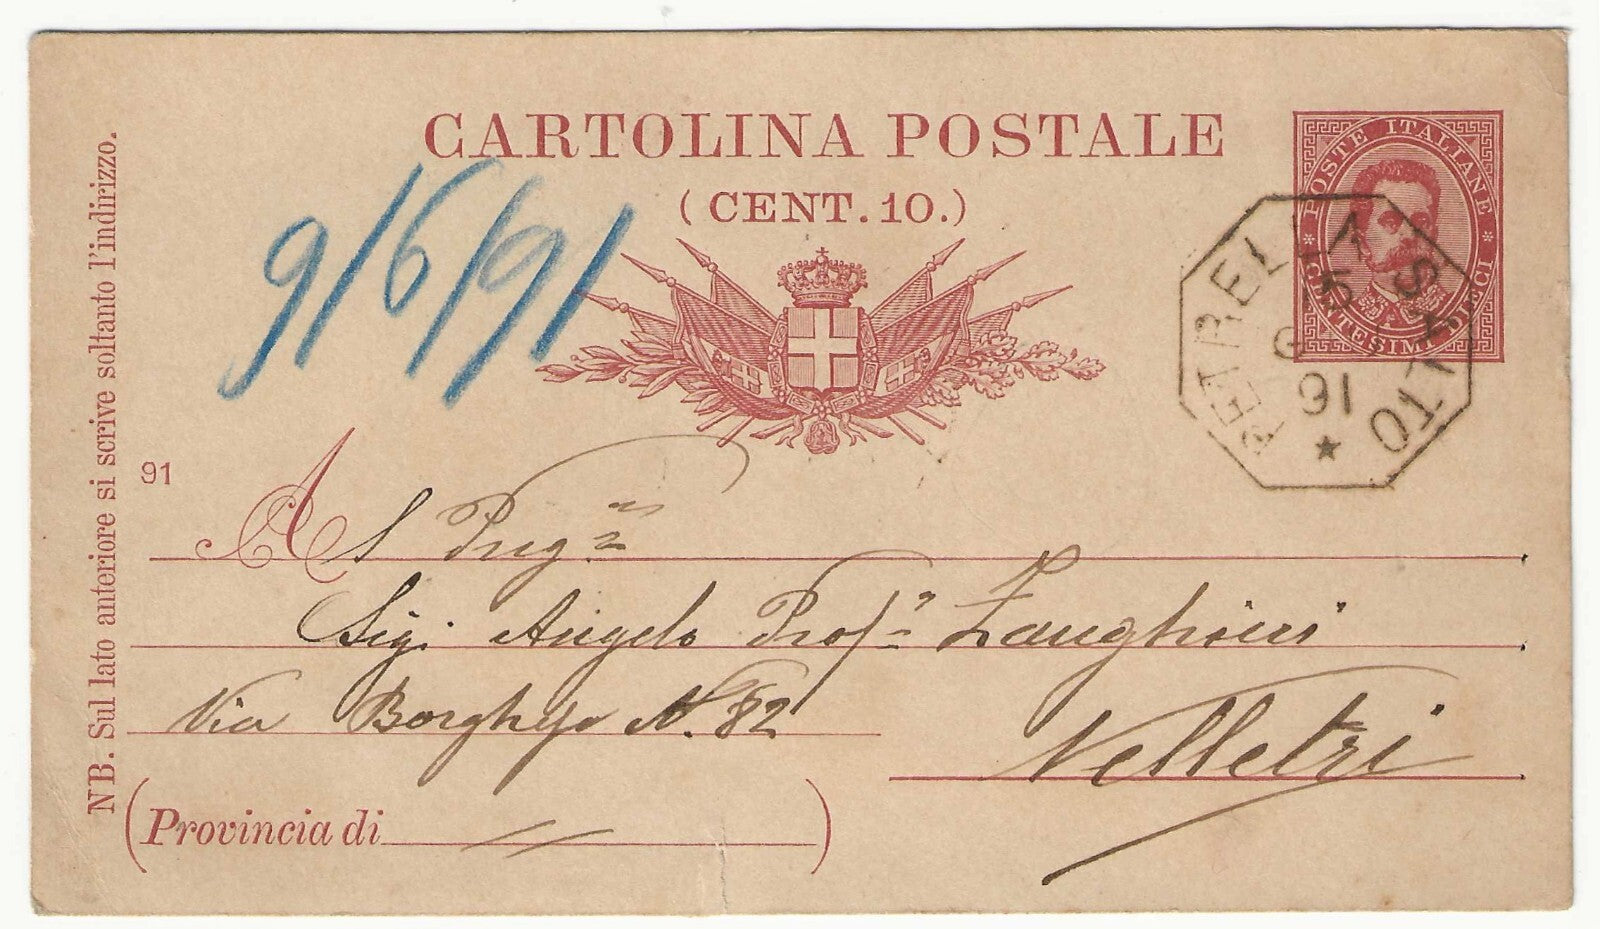 CARTOLINA POSTALE
(CENT. 10.)
POSTE ITALIANE
CENTESIMI DIECI
9/6/91
PETRELLA SALTO
91
NB. Sul lato anteriore si scrive soltanto l'indirizzo.
91
Al Preg.mo
Sig. Angelo Prof.r Zanghieri
Via Borghese N. 82
Velletri
(Provincia di //)